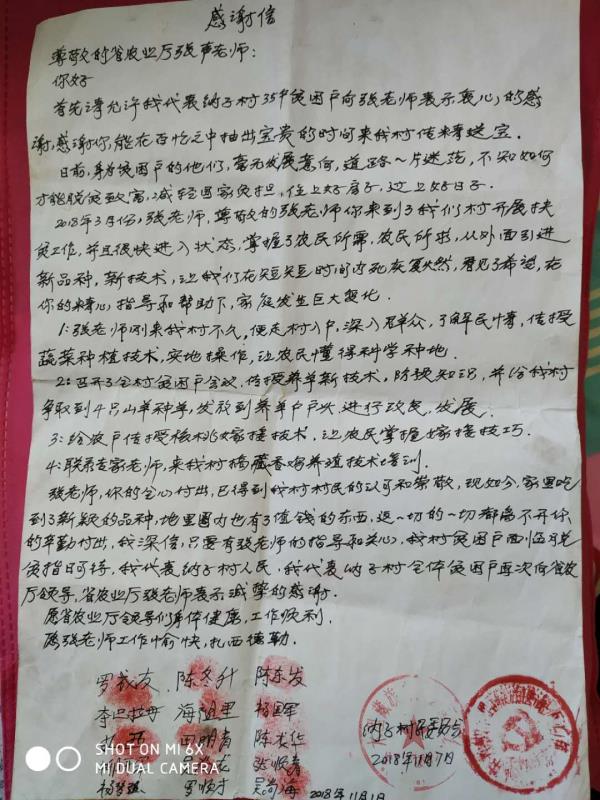 感谢信
尊敬的省农业厅张声老师:
你好
首先请允许我代表纳子村35户贫困户向张老师表示衷心的感
谢,感谢你,能在百忙之中抽出宝贵的时间来我村传精送宝.
日前,身为贫困户的他们,毫无发展意向,道路一片迷茫,不知如何
才能脱贫致富,减轻国家负担,住上好房子,过上好日子.
2018年3月份,张老师,尊敬的张老师你来到了我们村开展扶
贫工作,并且很快进入状态,掌握了农民所需,农民所求,从外面引进
新品种,新技术,让我们在短短时间内死灰复燃,看见了希望,在
你的精心指导和帮助下,家庭发生巨大变化.
1:张老师刚来我村不久,便走村入户,深入群众,了解民情,传授
蔬菜种植技术,实地操作,让农民懂得科学种地.
2:召开了全村贫困户会议,传授养羊新技术,防疫知识,并给我村
争取到4只山羊种羊,发放到养羊户户头进行改良,发展.
3:给农户传授核桃嫁接技术,让农民掌握嫁接技巧.
4:联系专家老师,来我村搞藏香鸡养殖技术培训.
张老师,你的全心付出,已得到我村村民的认可和崇敬,现如今,家里吃
到了新颖的品种,地里圈内也有了值钱的东西,这一切的一切都离不开你
的辛勤付出,我深信,只要有张老师的指导和关心,我村贫困户面临脱
贫指日可待,我代表纳子村人民,我代表纳子村全体贫困户再次向省农业
厅领导,省农业厅张老师表示诚挚的感谢.
愿省农业厅领导们身体健康,工作顺利.
愿张老师工作愉快,扎西德勒.
陈冬升 陈东发
海阻里 杨国军
田明青 陈发华
张顺青
罗顺才 吴尚海
纳子村村委会
2018年11月7日
2018年11月1日
SHOT ON MI 6X
MI DUAL CAMERA